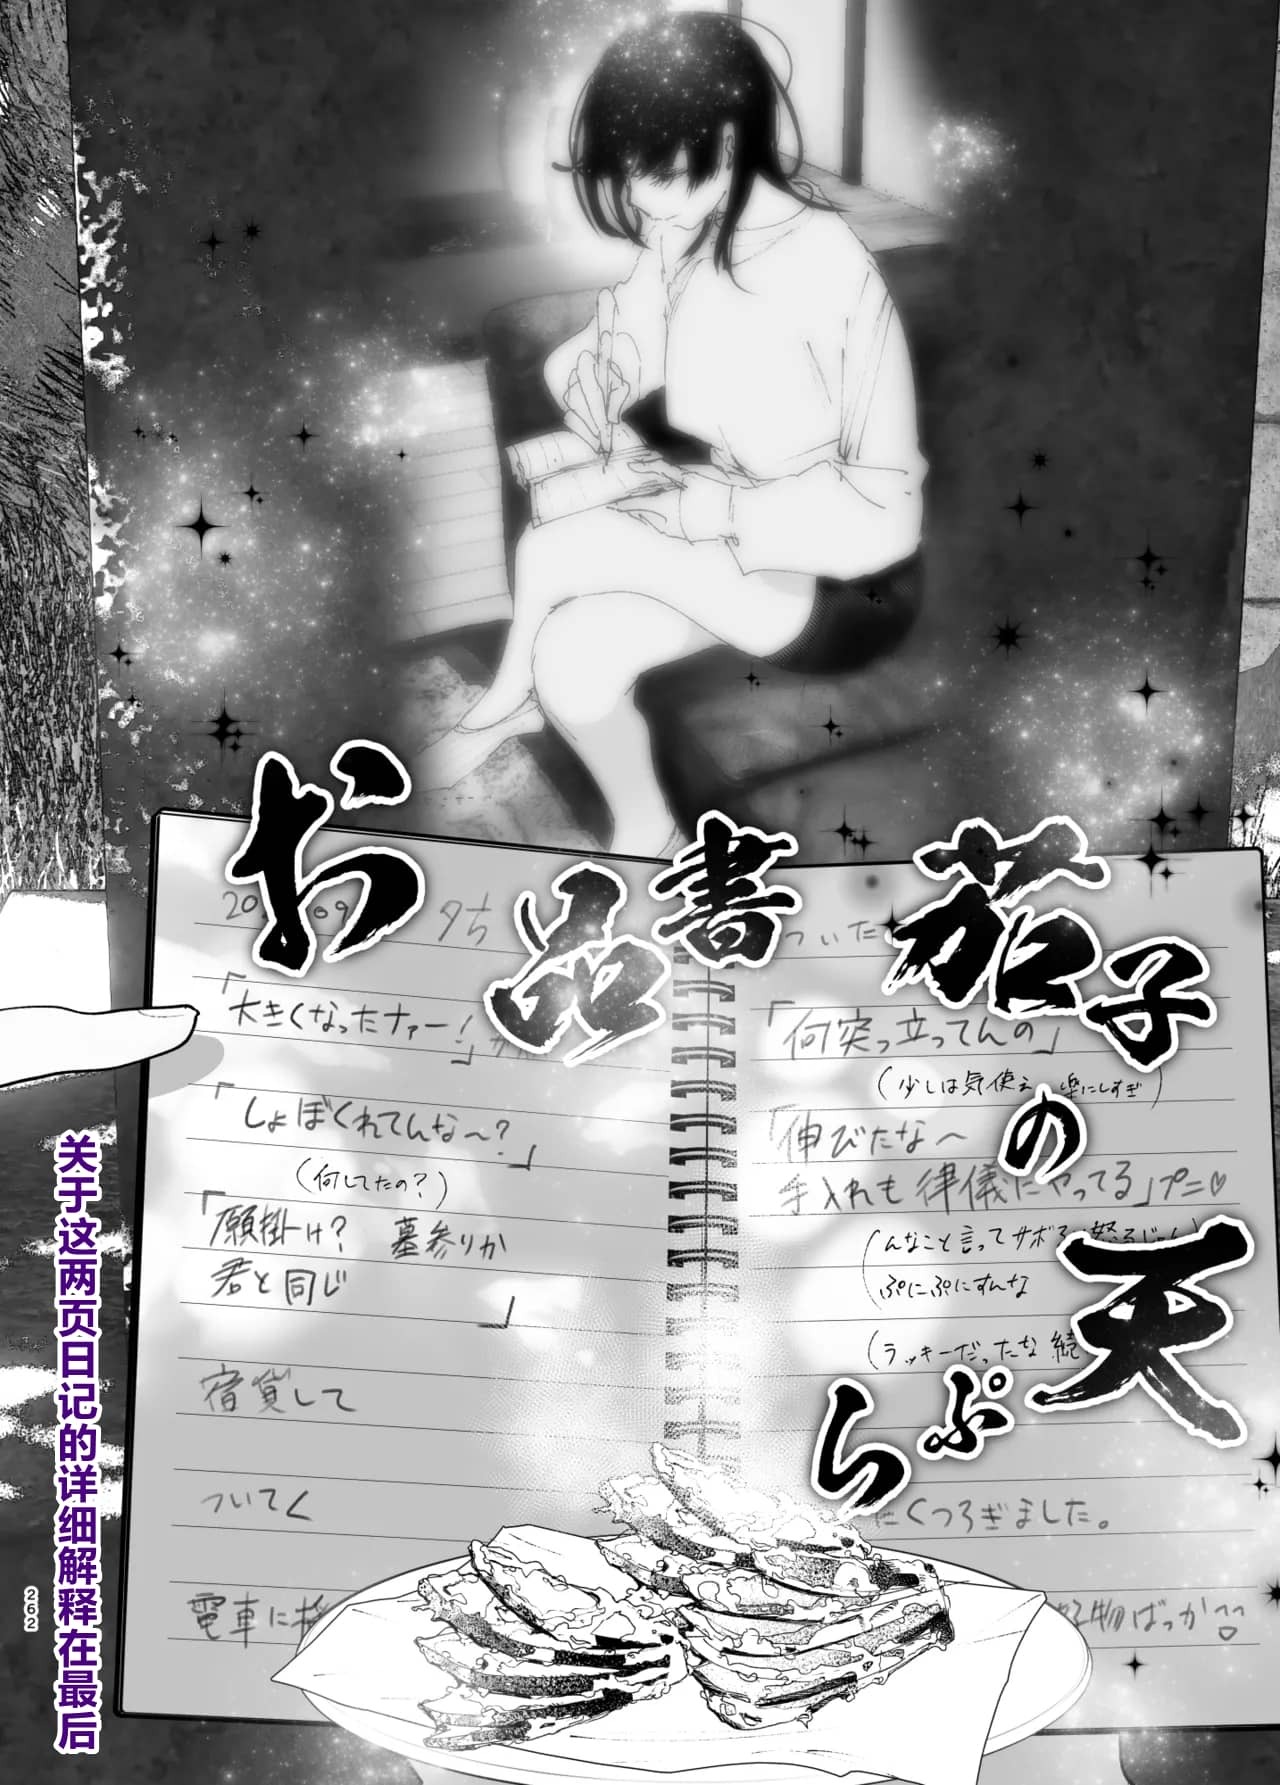 お品書
茄子の天ぷら
夕方
「大きくなったナァー!」
「しょぼくれてんな〜?」
(何してたの?)
「願掛け? 墓参りか
君と同じ
」
宿貸して
ついてく
電車に
ついた
「何突っ立ってんの」
(少しは気使え 楽にしすぎ)
「伸びたな〜
手入れも律儀にやってる」プニ♡
(んなこと言ってサボ
ぷにぷにすんな
(ラッキーだったな 続
にくつろぎました。
好物ばっか
关于这两页日记的详细解释在最后
262